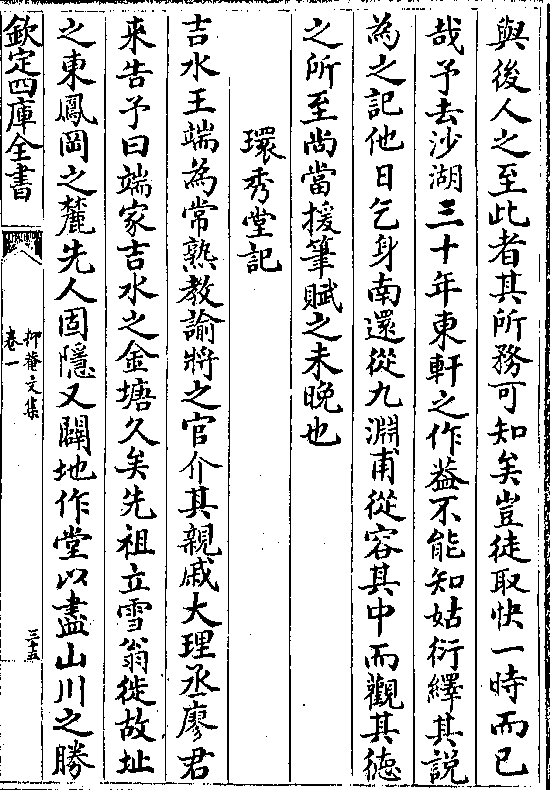 與後人之至此者其所務可知矣豈徒取快一時而已
哉予去沙湖三十年東軒之作益不能知姑衍繹其說
為之記他日乞身南還從九淵甫從容其中而觀其徳
之所至尚當援筆賦之未晚也
環秀堂記
吉水王端為常熟教諭將之官介其親戚大理丞廖君
来告予曰端家吉水之金塘久矣先祖立雪翁徙故址
之東鳳岡之麓先人固隱又闢地作堂以盡山川之勝
欽定四庫全書
抑菴文集
卷一
三十五